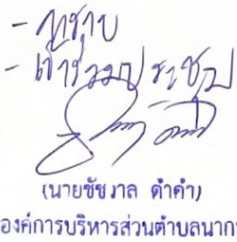 - ทราบ
- เข้าร่วมประชุม
(นายชัชวาล ดำคำ)
องค์การบริหารส่วนตำบลนาก